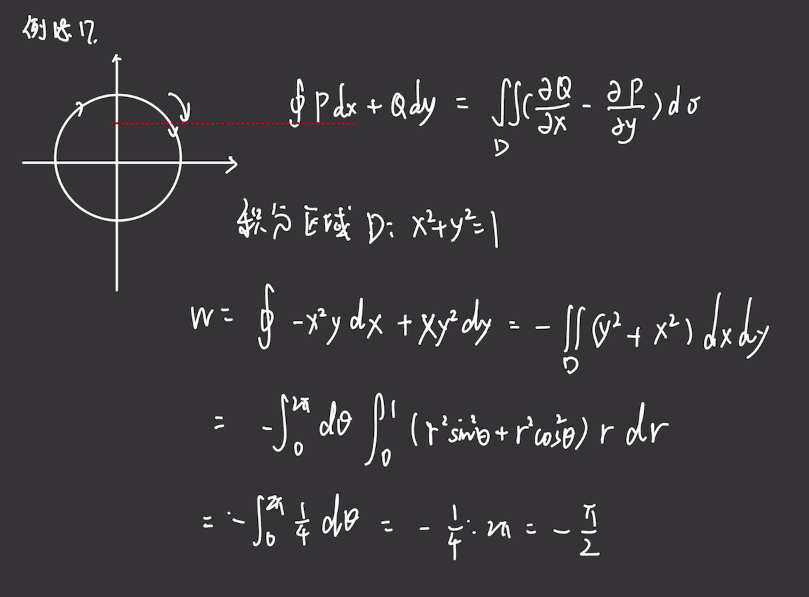 例题17.
∮ Pdx + Qdy = ∬_D (∂Q/∂x - ∂P/∂y) dσ
积分区域 D: x²+y²=1
W = ∮ -x²y dx + xy² dy = - ∬_D (y² + x²) dxdy
= -∫₀^{2π} dθ ∫₀^1 (r²sin²θ + r²cos²θ) r dr
= -∫₀^{2π} 1/4 dθ = - 1/4 · 2π = - π/2